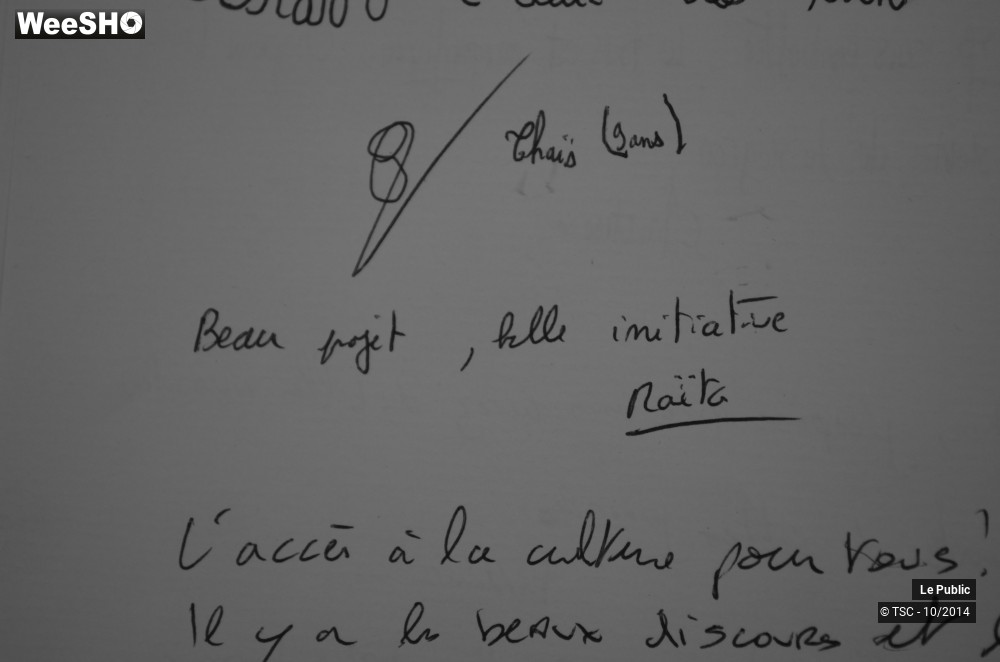 WeeSHO
Thaïs (9ans)
Beau projet, belle initiative
Naïta
L'accès à la culture pour tous!
Il y a les beaux discours et
Le Public
© TSC - 10/2014